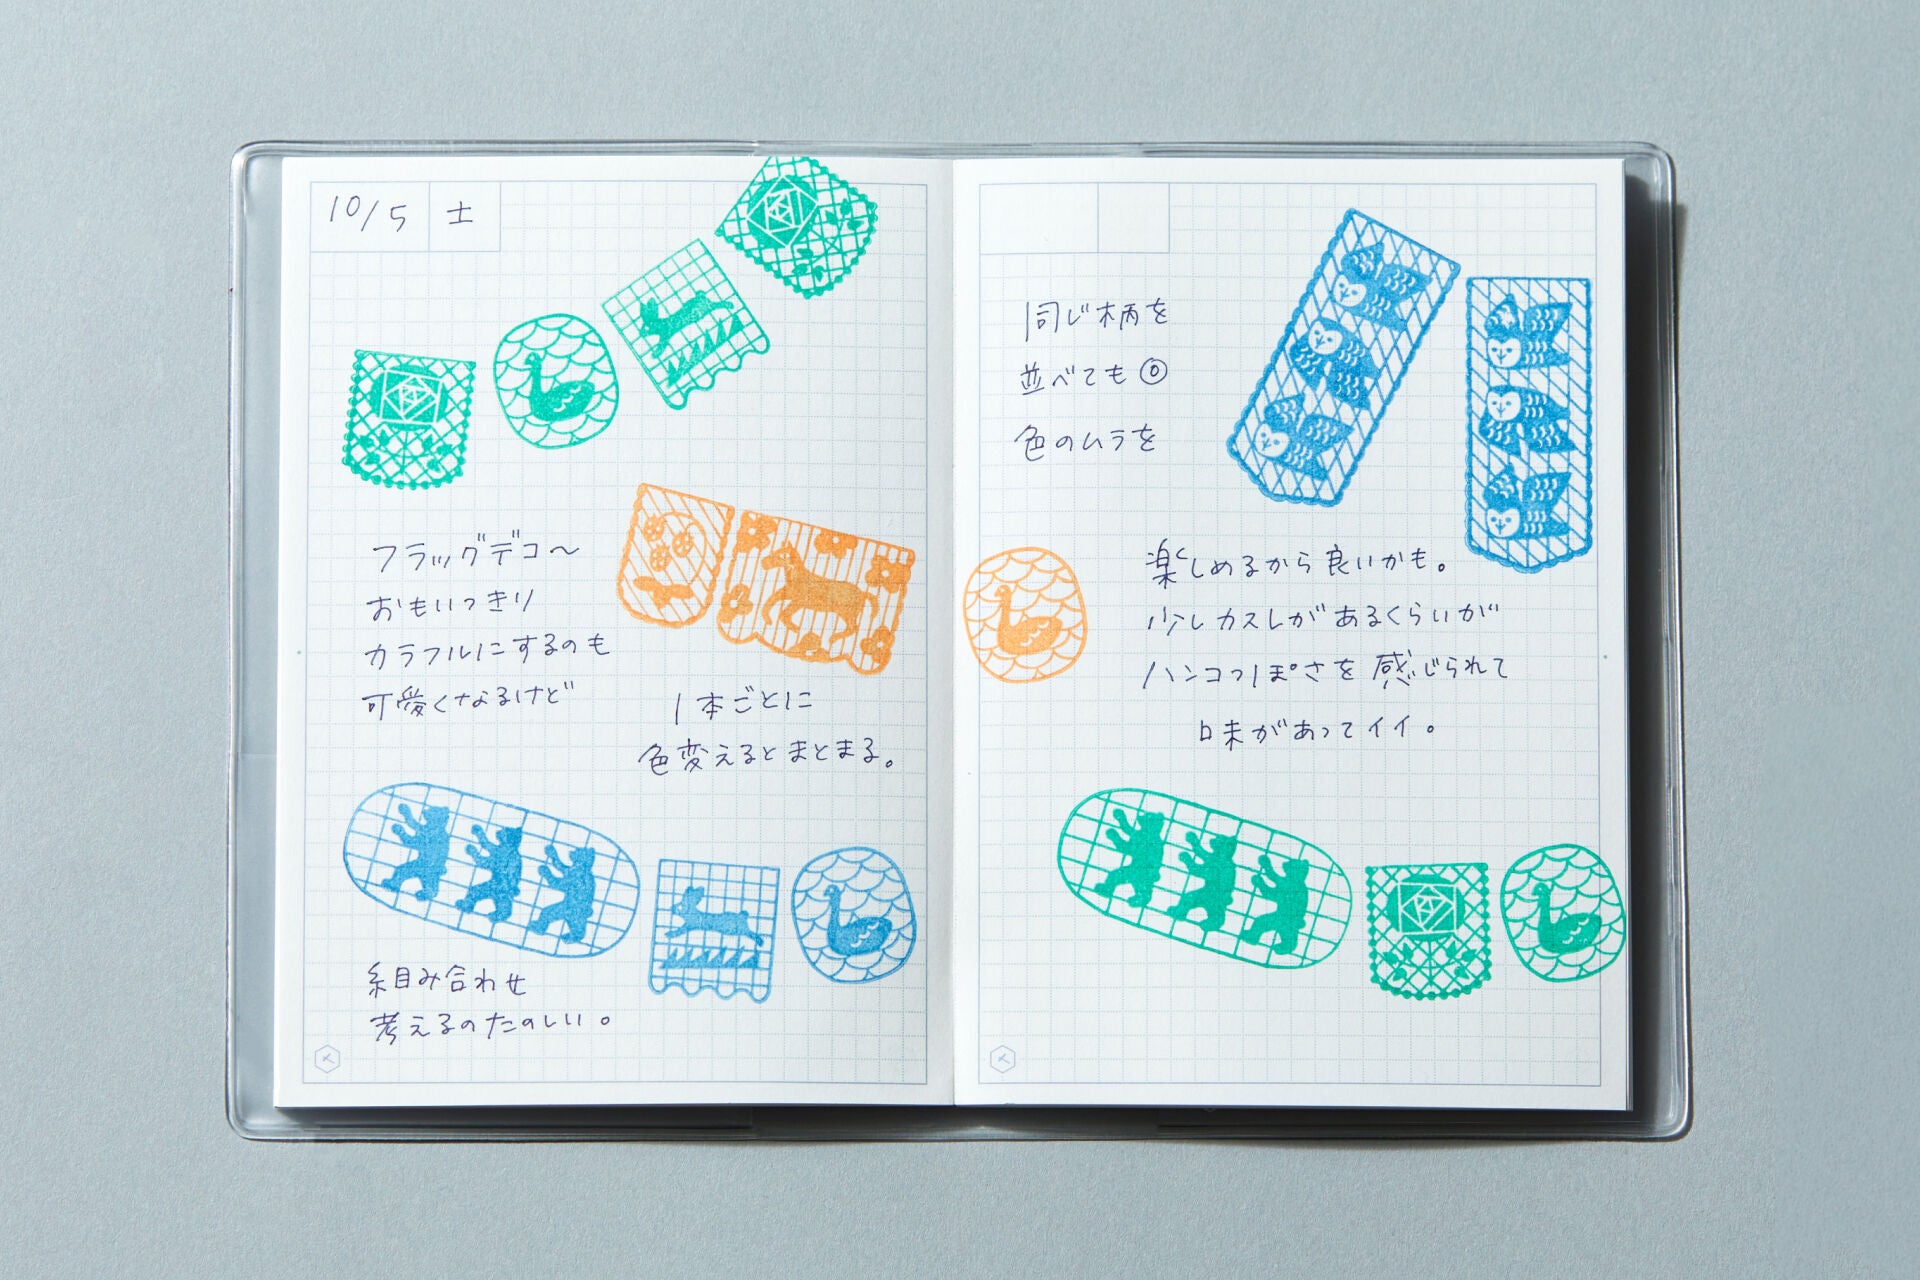 10/5 土
フラッグデコ〜
おもいっきり
カラフルにするのも
可愛くなるけど
1本ごとに
色変えるとまとまる。
組み合わせ
考えるのたのしい。
同じ柄を
並べても◎
色のムラを
楽しめるから良いかも。
少しカスレがあるくらいが
ハンコっぽさを感じられて
味があってイイ。